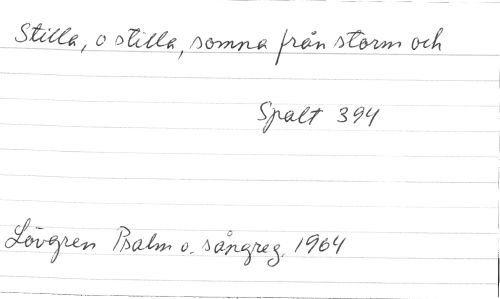 Stilla, o stilla, somna från storm och
Spalt 394
Lövgren Psalm o. sångreg. 1964